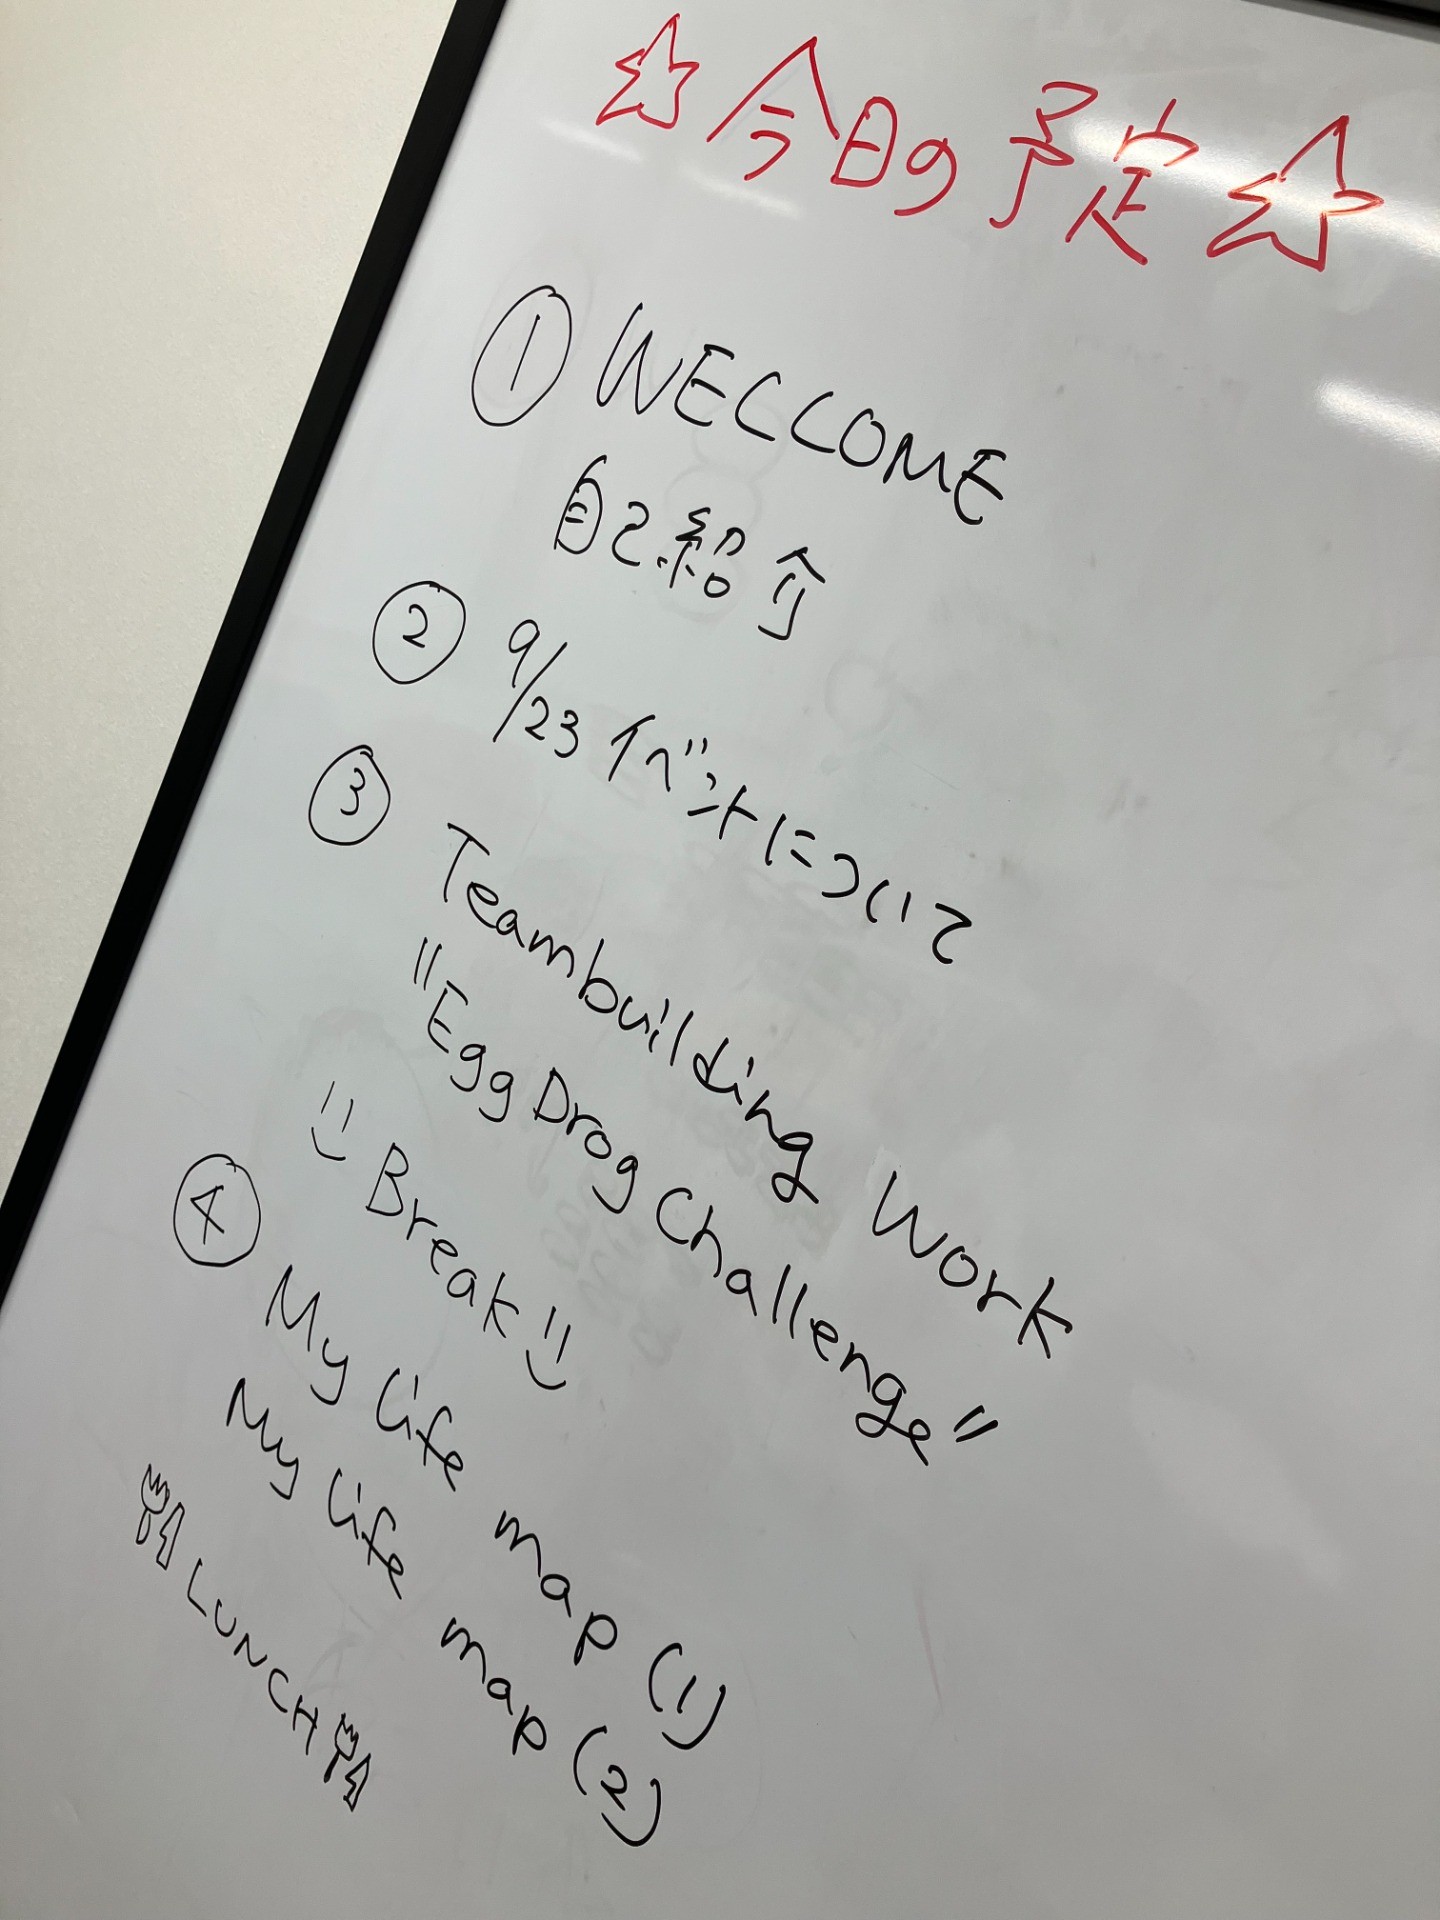 ☆今日の予定☆
① WELCOME
自己紹介
② 9/23 イベントについて
③ Teambuilding Work
"Egg Drog Challenge"
Break
④ My life map (1)
My life map (2)
LUNCH